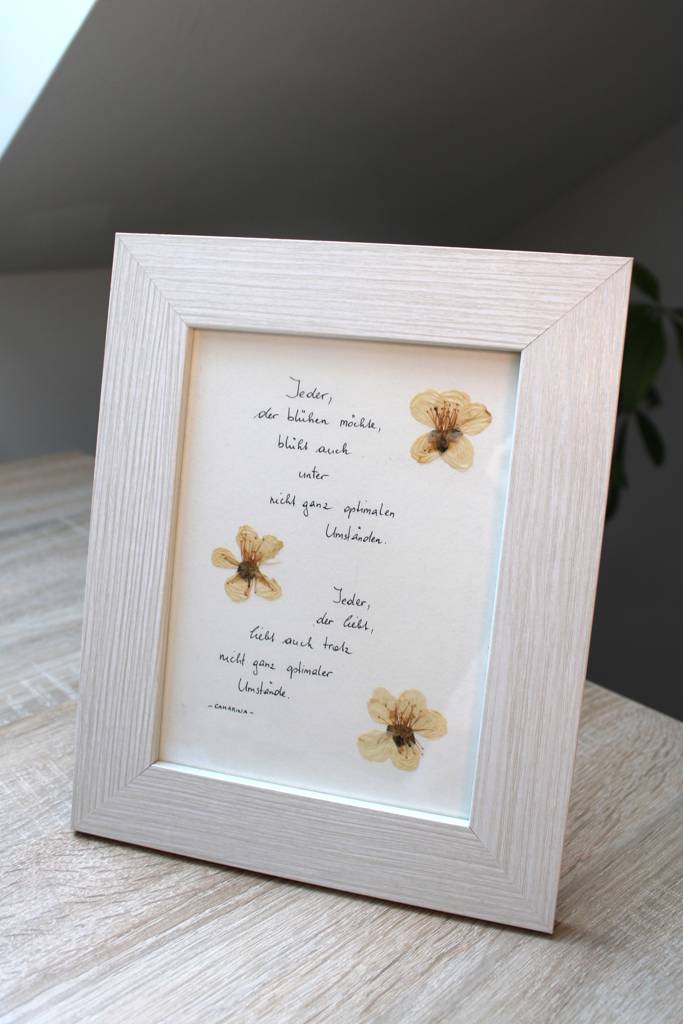 Jeder,
der blühen möchte,
blüht auch
unter
nicht ganz optimalen
Umständen.
Jeder,
der liebt,
liebt auch trotz
nicht ganz optimaler
Umstände.
- CAMARINA -